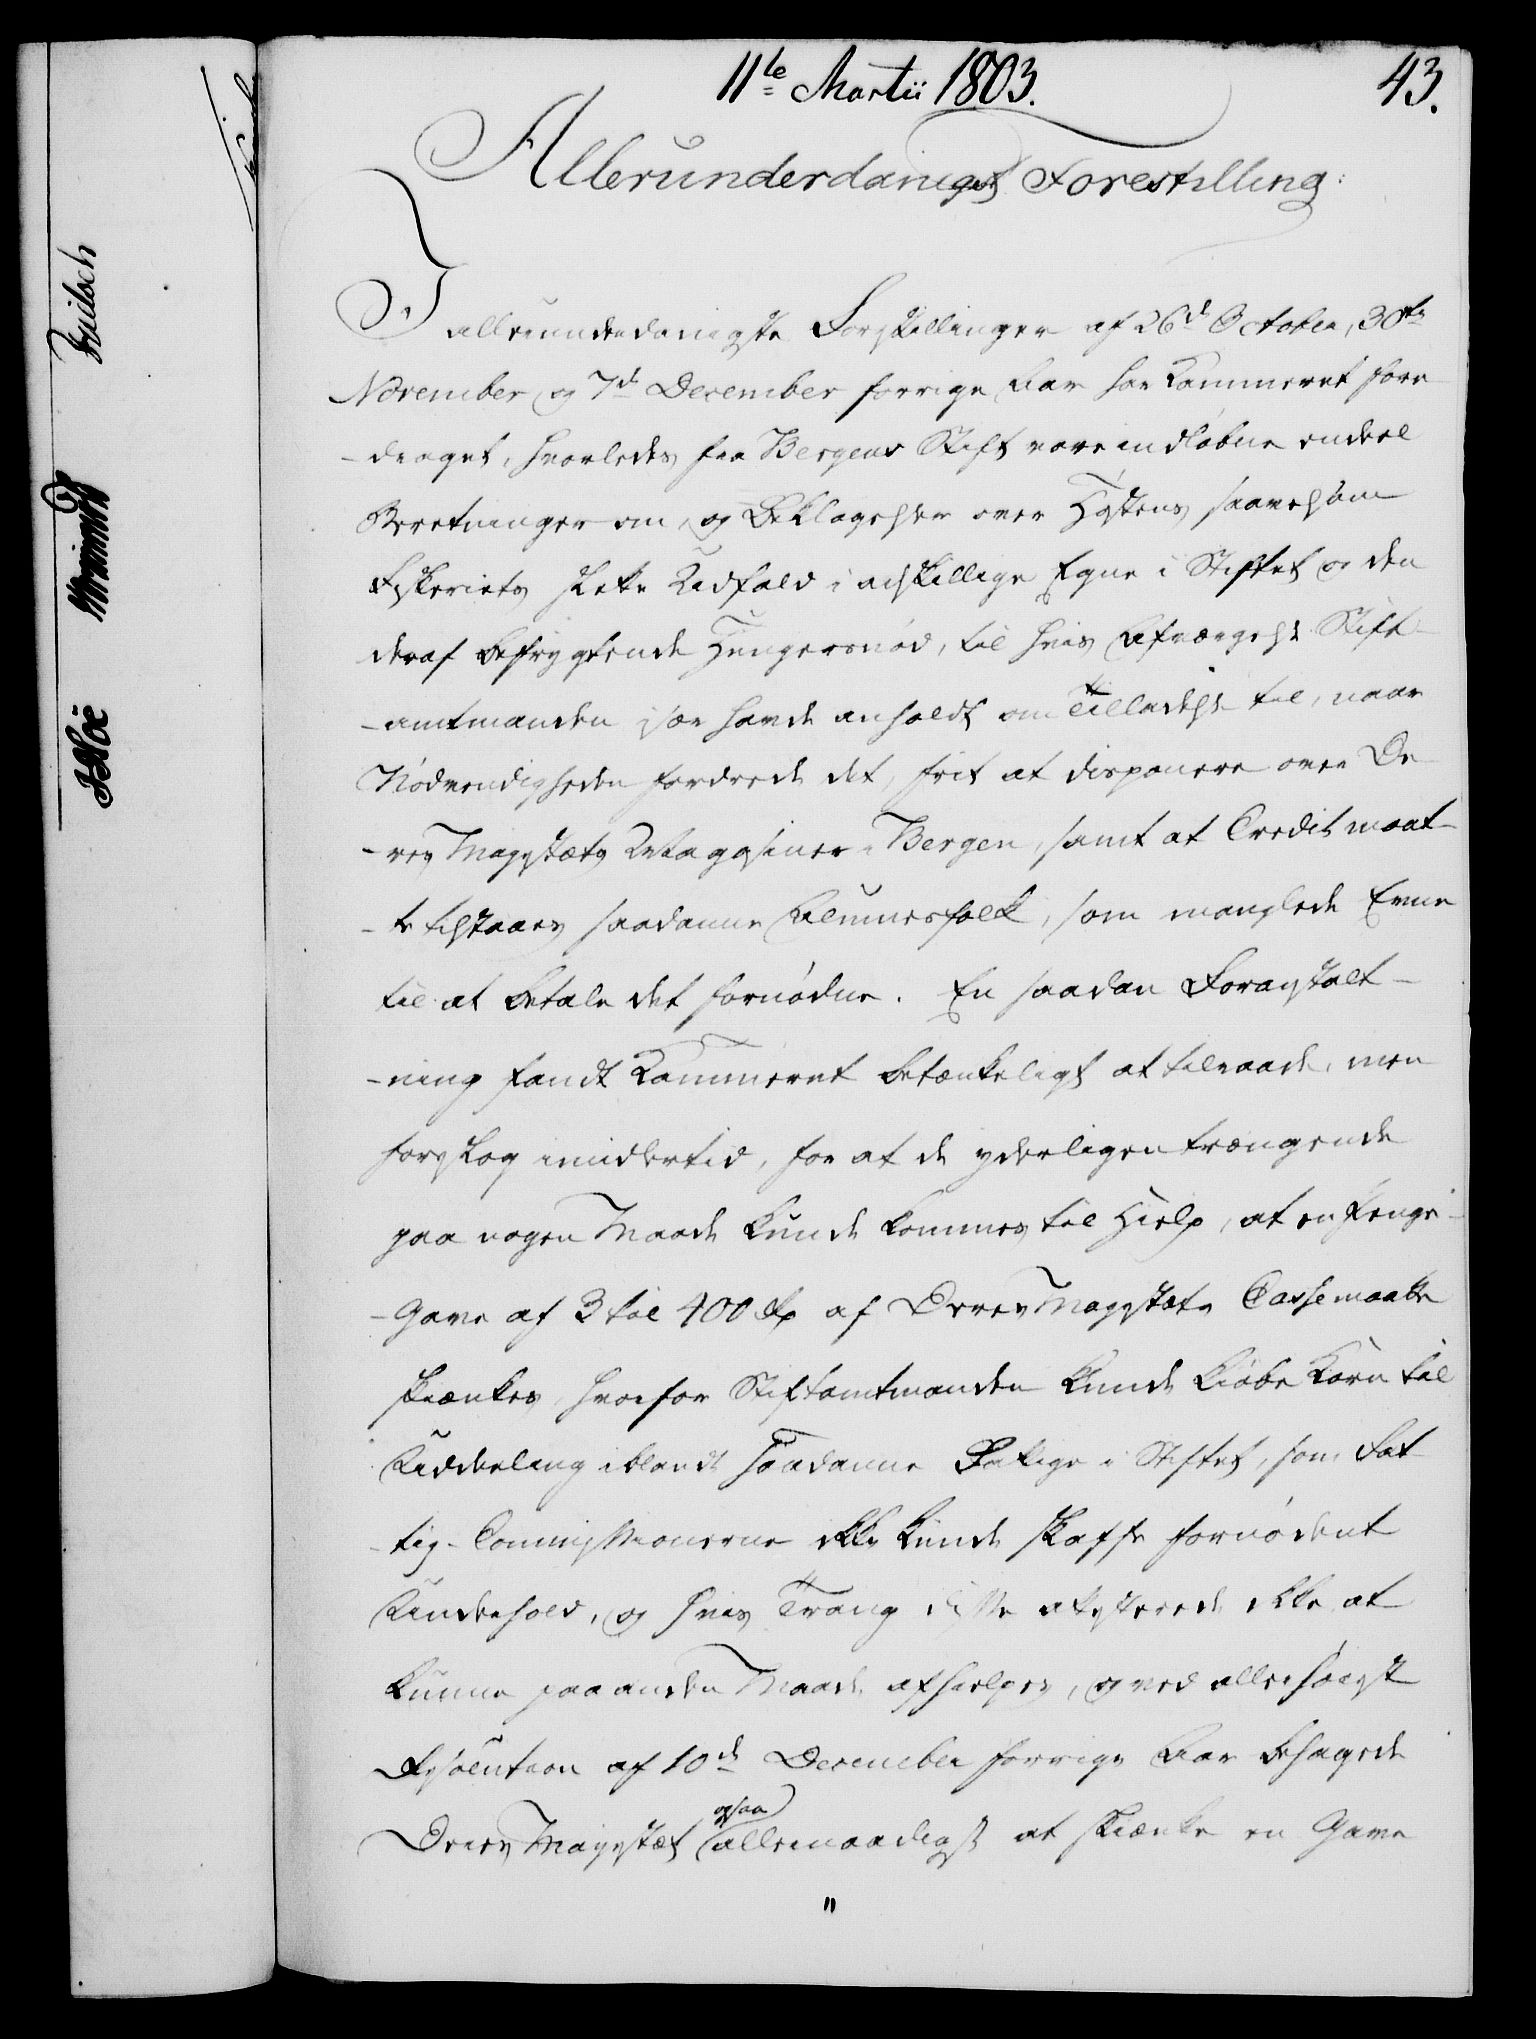 11te Martii 1803.
43.
Allerunderdanigst Forestilling:
I allerunderdanigste Forestillinger af 26d October, 30te
November og 7d December forrige Aar har Kammeret fore
-draget, hvorledes fra Bergens Stift vare indløbne endeel
Beretninger om, og Beklagelser over Høstens, saavelsom
Fiskeriets slette Udfald i adskillige Egne i Stiftet og den
deraf befrygtende Hungersnød, til hvis Afværgelse Stift-
-amtmanden især havde anholdt om Tilladelse til, naar
Nødvendigheden fordrede det, frit at disponere over De-
-res Majestæts Magasiner i Bergen, samt at Credit maat-
-te tilstaaes saadanne Almuesfolk, som manglede Evne
til at betale det fornødne. En saadan Foranstalt-
-ning fandt Kammeret betænkeligt at tilraade, men
foreslog imidlertid, for at de yderligen trængende
paa nogen Maade kunde kommes til Hielp, at en Penge-
-Gave af 3 til 400 Rd af Deres Majestæts Casse maatte
skienkes, hvorfor Stiftamtmanden kunde kiøbe Korn til
Uddeeling iblandt saadanne Fattige i Stiftet, som Fat
-tig-Commissionerne ikke kunde skaffe fornødent
Underhold, og hvis Trang disse attesterede ikke at
kunne paa anden Maade afhielpes, og ved allerhøieste
Resolution af 10d December forrige Aar behagede
Deres Majestæt ogsaa allernaadigst at skienke en Gave
"